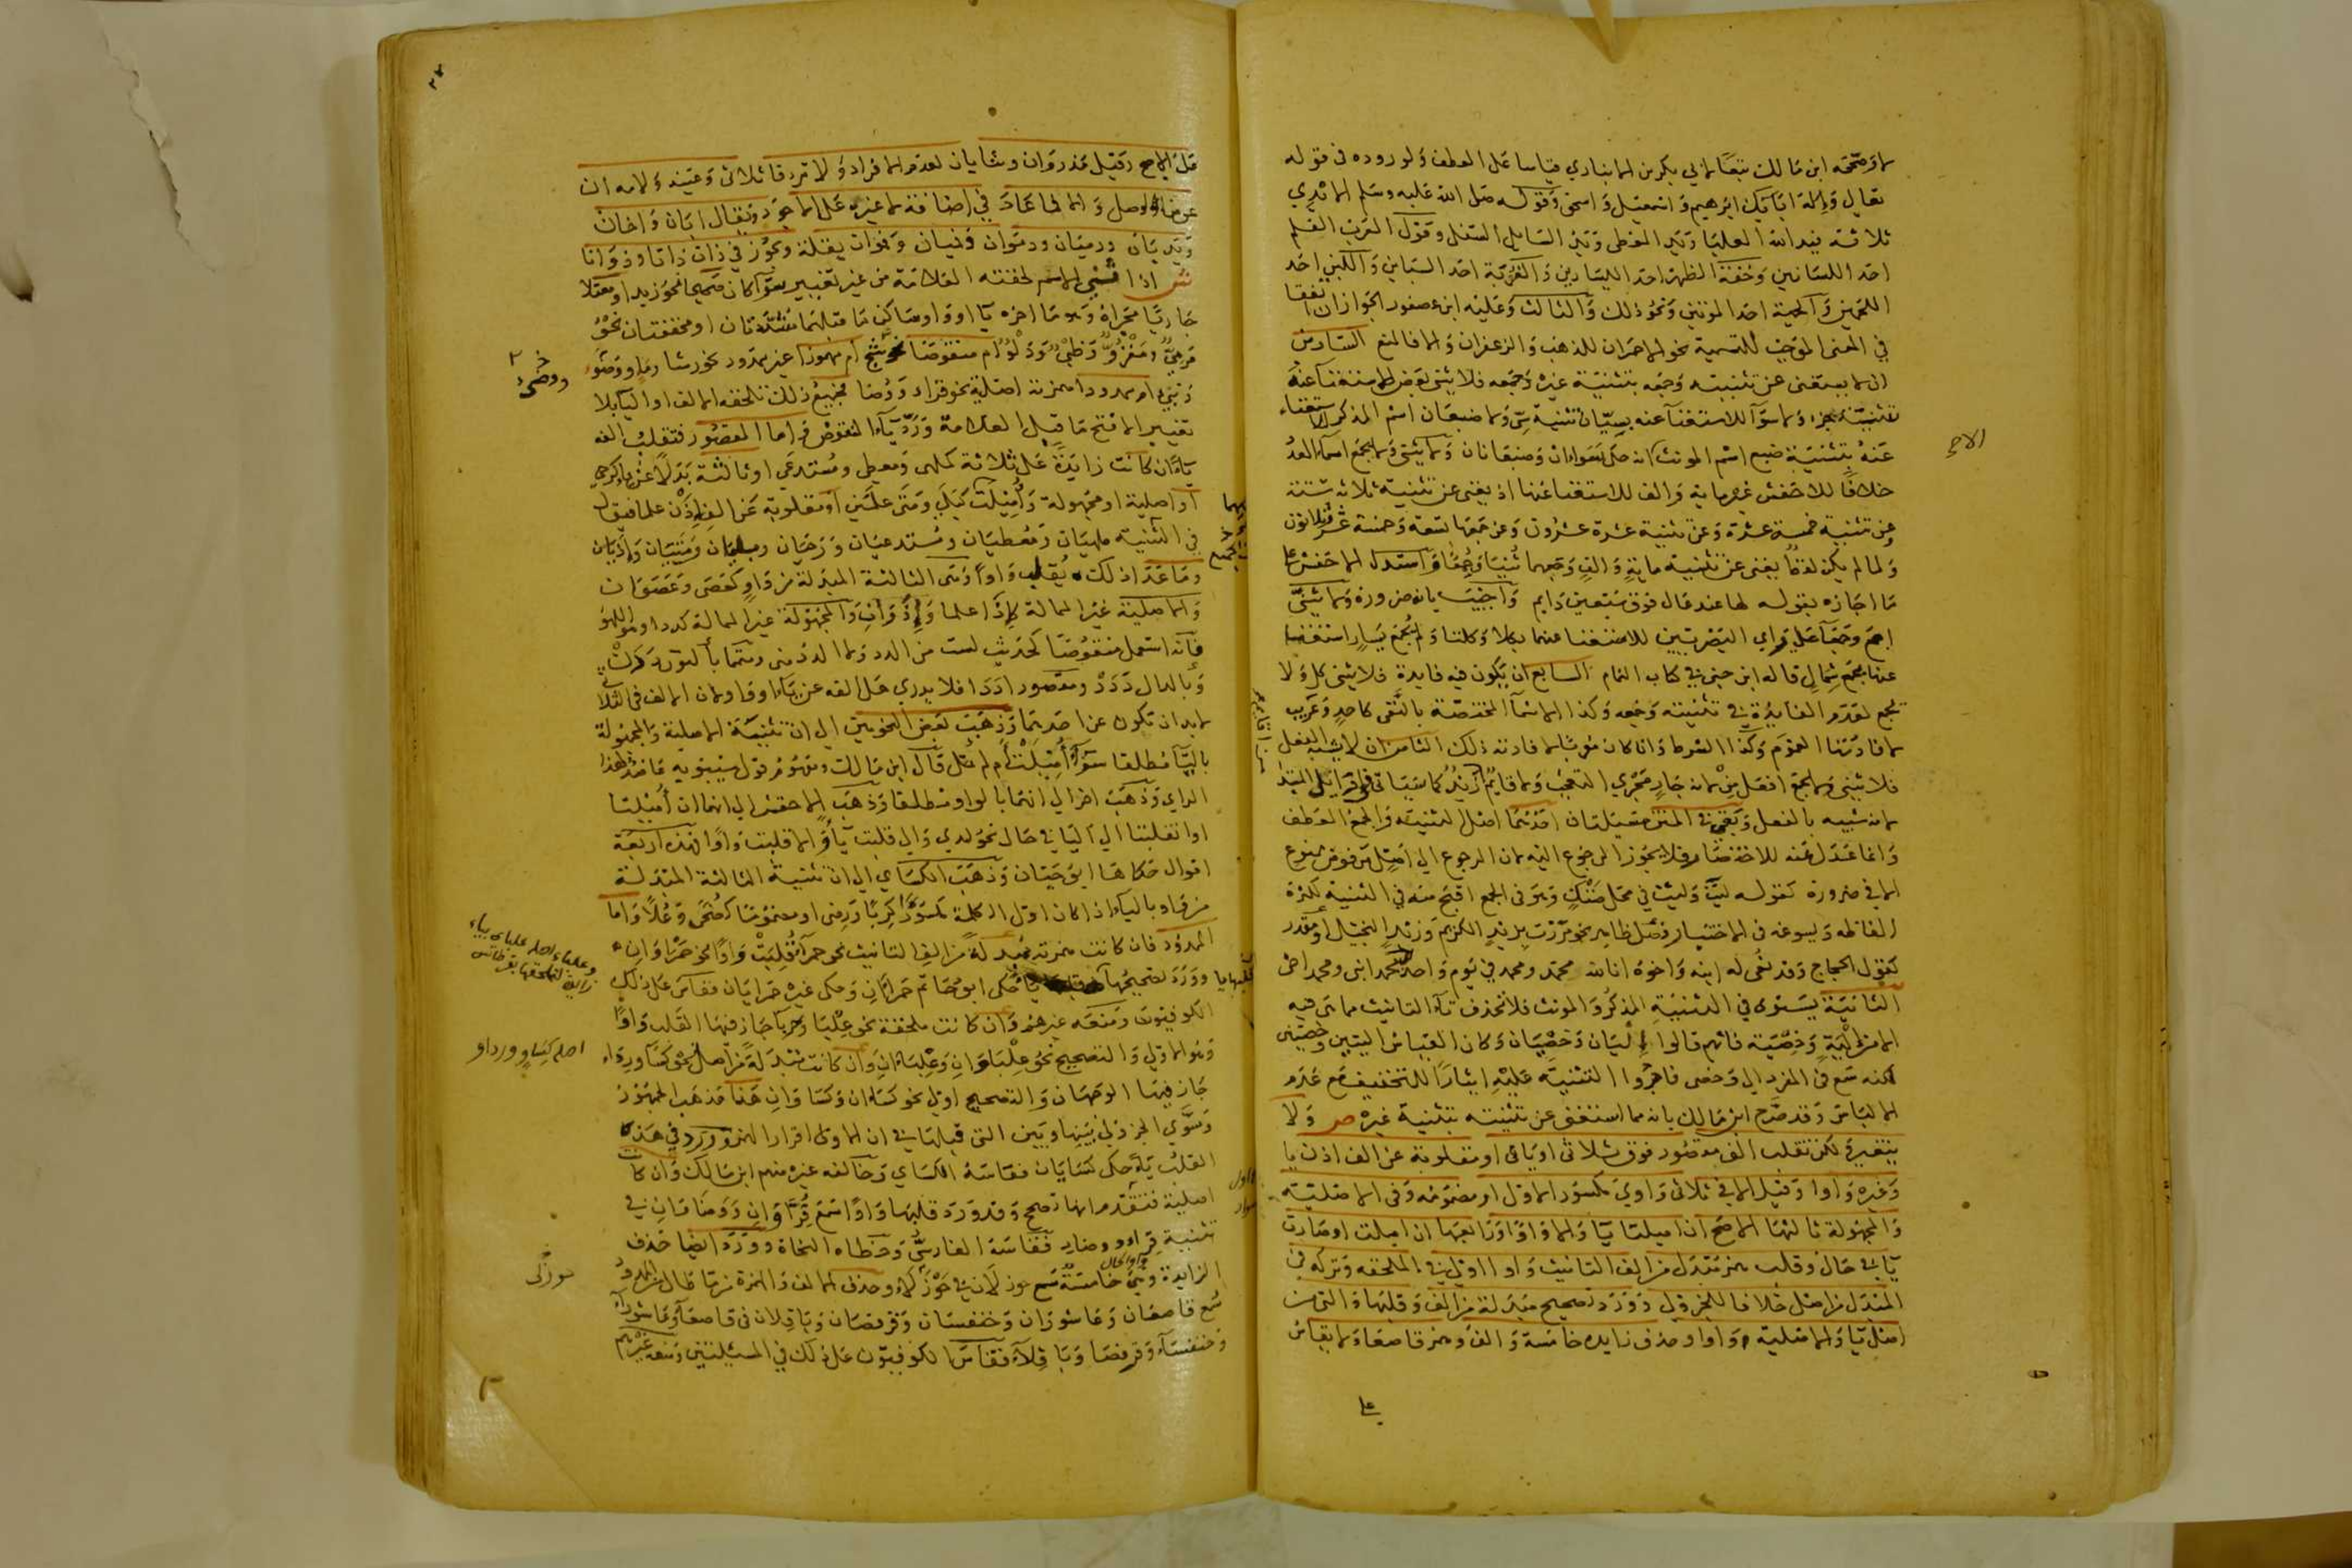 وصححه ابن مالك تبعا لابي بكر بن الانباري قياسا على العطف ولوروده في قوله
تعالى واله ابايك ابرهيم واسمعيل واسحق وقوله صلى الله عليه وسلم الايدي
ثلاثة فيد الله العليا ويد المعطى ويد السايل السفلى وقول العرب القلم
احد اللسانين وخفة الظهر احد اليسارين والغربة احد السبابين واللبن احد
اللحمين والحمية احد الموتتين ونحو ذلك والثالث وعليه ابن عصفور الجواز ان اتفقا
في المعنى الموجب للتسمية نحو الاحمران للذهب والزعفران والا فالمنع السادس
ان لا يستغنى عن تثنيته وجمعه بتثنية غيره وجمعه فلا يثنى بعض للاستغناء عنه
بتثنية جزء ولا سواء للاستغناء عنه بسيان تثنية سي ولا ضبعان اسم المذكر
عنه بتثنية ضبع اسم المونث انه حكى سواءان وضبعانان ولا يثنى ولا يجمع اسماء العدد
خلافا للاخفش غير ماية والف للاستغناء عنها اذ يغنى عن تثنية ثلاثة ستة
وعن تثنية خمسة عشرة وعن تثنية عشرة عشرون وعن جمعها تسعة وخمسة عشر وثلاثون
ولما لم يكن لفظ يغنى عن تثنية ماية والف وجمعهما ثنيا وجمعا واستدل الاخفش على
ما اجازه بقوله لها عند عال فوق سبعين دايم واجيب بانه ضرورة ولا يثنى
اجمع وجمعاء على راي البصريين للاستغناء عنهما بكلا وكلتا ولم يجمع يسار استغناء
عنها بجمع شمال قاله ابن جني في كتاب التمام السابع ان يكون فيه فايدة فلا يثنى كل ولا
يجمع لعدم الفايدة في تثنيته وجمعه وكذا الاسماء المختصة بالنفي كاحد وعريب
لافادتها العموم وكذا الشرط وان كان معربا لافادته ذلك الثامن ان لا يشبه الفعل
فلا يثنى ولا يجمع افعل من لانه جار مجرى التعجب ولا قايم من اقايم زيد كما سياتي
لانه شبيه بالفعل
وانما عدل عنه للاختصار فلا يجوز الرجوع اليه لان الرجوع الى اصل مرفوض ممنوع
الا في ضرورة كقوله ليث وليث في محل ضنك وهو في الجمع اقبح منه في التثنية لكثرة
الفاظه ويسوغه في الاختيار فصل ظاهر نحو مررت بزيد الكريم وزيد البخيل او مقدر
كقول الحجاج وقد نعى له ابنه واخوه انا لله محمد ومحمد في يوم واحد محمد ابني ومحمد اخي
الثانية يستوى في التثنية المذكر والمونث فلا تحذف تاء التانيث مما هي فيه
الا من الية وخصية فانهم قالوا اليان وخصيان وكان القياس اليتين وخصيتين
لكنه سمع في المفرد الى وخصى فاجروا التثنية عليه ايثارا للتخفيف مع عدم
الالباس وقد صرح ابن مالك بانه مما استغنى عن تثنيته بتثنية غيره ص ولا
يتغير لكن تقلب الف مقصور فوق ثلاثي او يائي او منقلوبة عن الف اذن يا
وغيره واوا وقيل الا في ثلاثي واوي مكسور الاول او مضمومه وفي الاصلية
والمجهولة ثالثها الاصح ان اميلتا يا والا واوا ورابعها ان اميلت او صارت
يا في حال وقلب همز مبدل من الف التانيث واوا اولى في الملحقة وتركه في
المبدل من اصل خلافا للجزولي وورد تصحيح مبدلة من الف وقلبها والتي من
اصل يا والاصلية واوا وحذف زايدة خامسة والف وهمز قاصعاء ولا يقاس
على
الاصح وقيل مذروان وثنايان لعدم الافراد ولا ترد فاء ثلاثي وعينه ولامه ان
عوضا الوصل والا لما عاد في اضافة لا غيره على الاجود ويقال ابان واخان
ويديان ودميان ودموان وفميان وفموان بقلة ويجوز في ذات ذاتا وذواتا
ش اذا ثني الاسم لحقته العلامة من غير تغيير سواء كان صحيحا نحو زيد او معتلا
جاريا مجراه وهو ما اخره يا او واو ساكن ما قبلهما مشددتان او مخففتان نحو
مرمي ومغزو وظبي ودلو ام منقوصا نحو شج ام مهموزا غير ممدود نحو رشا ووضوء
ونبئ او ممدودا همزته اصلية نحو قراء ووضاء فجميع ذلك تلحقه الالف او الياء بلا
تغيير الا فتح ما قبل العلامة ورد ياء المنقوص واما المقصور فتقلب الفه
ياء ان كانت زايدة على ثلاثة كملهى ومعطى ومستدعى او ثالثة بدلا عن ياء كرحى
او اصلية او مجهولة واميلت كبلى ومتى علمين او منقلوبة عن الف اذن علما فيقال
في التثنية ملهيان ومعطيان ومستدعيان ورحيان وبليان ومتيان واذيان
وما عدا ذلك يقلب واوا وهي الثالثة المبدلة من واو كعصى وعصوان
والاصلية غير الممالة كاذا علما واذوان والمجهولة غير الممالة كددا وهو اللهو
فانه استعمل منقوصا كحديث لست من الدد ولا الدد مني ومتمما بالنون ددن
وبالدال ددد ومقصورا ددا فلا يدرى هل الفه عن ياء او واو لان الالف في الثلاثي
لا بد ان تكون عن احدهما وذهب بعض النحويين الى ان تثنية الاصلية والمجهولة
بالياء مطلقا سواء اميلت ام لم تمل قال ابن مالك ومفهوم قول سيبويه عاضد لهذا
الراي وذهب اخر الى انهما بالواو مطلقا وذهب الاخفش الى انهما ان اميلتا
او انقلبتا الى اليا في حال نحو لدى والى قلبت ياء والا قلبت واوا فهذه اربعة
اقوال حكاها ابو حيان وذهب الكسائي الى ان تثنية الثالثة المبدلة
من واو بالياء اذا كان اول الكلمة مكسورا كربا ورضى او مضموما كضحى وعلا واما
الممدود فان كانت همزته مبدلة من الف التانيث نحو حمراء قلبت واوا نحو حمراوان
وورد تصحيحها حكى ابو حاتم حمراءان وحكى غيره حمرايان فقاس على ذلك
الكوفيون ومنعه غيرهم وان كانت ملحقة نحو علباء وحرباء جاز فيها القلب واوا
وهو الاولى والتصحيح نحو علباوان وعلباءان وان كانت مبدلة من اصل نحو كساء ورداء
جاز فيها الوجهان والتصحيح اولى نحو كساءان وكساوان هذا مذهب الجمهور
وسوى الجزولي بينها وبين التي قبلها في ان الاولى اقرار الهمز وورد في هذه
القلب ياء حكى كسايان فقاسه الكسائي وخالفه غيره منهم ابن مالك وان كانت
اصلية فتقدم انها تصح وقد ورد قلبها واوا سمع قراوان ووضاوان في
تثنية قراء ووضاء فقاسه الفارسي وخطاه النحاة وورد ايضا حذف
الزايدة وهي خامسة سمع خوزلان في خوزلى وحذف الالف والهمزة من الممدود
سمع قاصعان وعاشوران وخنفسان وقرفصان وباقلان في قاصعاء وعاشوراء
وخنفساء وقرفصاء وباقلاء فقاس الكوفيون على ذلك في المسئلتين ومنعه غيرهم
اصله كساو ورداو
خوزلى